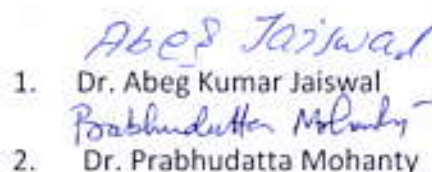 Abeg Jaiswal
1. Dr. Abeg Kumar Jaiswal
Prabhudatta Mohanty
2. Dr. Prabhudatta Mohanty